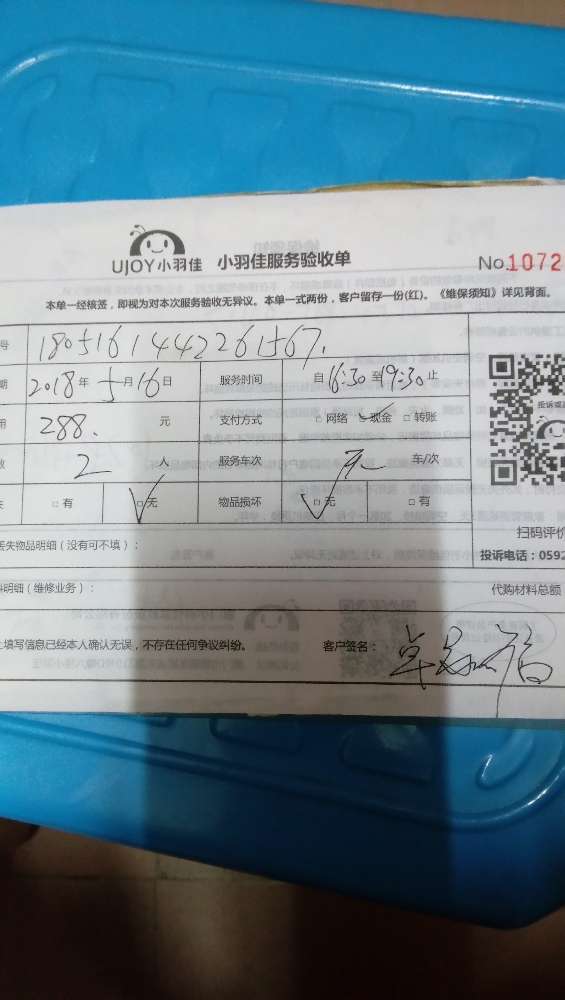 UJOY小羽佳 小羽佳服务验收单 No.1072
本单一经核签，即视为对本次服务验收无异议。本单一式两份，客户留存一份(红)。《维保须知》详见背面。
号 1805161442261567.
期 2018年5月16日 服务时间 自16:30至19:30止
用 288. 元 支付方式 □网络 □现金 □转账
数 2 人 服务车次 无 车/次
失 □有 □无 物品损坏 □无 □有
扫码评价
丢失物品明细（没有可不填）：
投诉电话：0592
料明细（维修业务）：
代购材料总额
上填写信息已经本人确认无误，不存在任何争议纠纷。 客户签名：